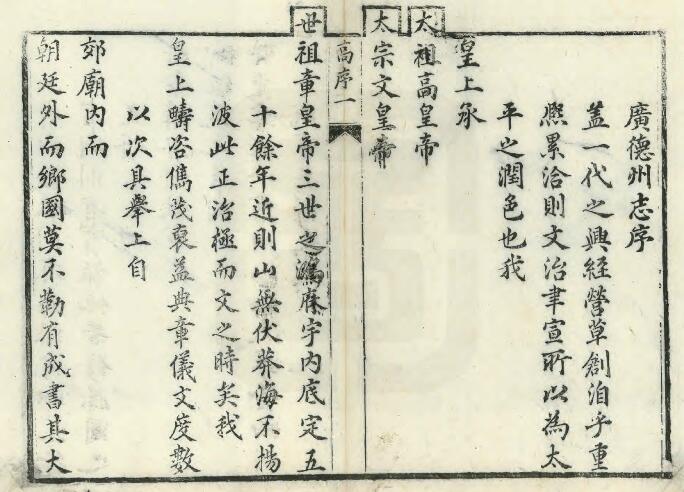 廣德州志序
蓋一代之興經營草創洎乎重
熙累洽則文治聿宣所以為太
平之潤色也我
皇上承
太祖高皇帝
太宗文皇帝
高序一
世祖章皇帝三世之鴻庥宇內底定五
十餘年近則山無伏莽海不揚
波此正治極而文之時矣我
皇上疇咨儁茂裒益典章儀文度數
以次具舉上自
郊廟內而
朝廷外而鄉國莫不勒有成書其大